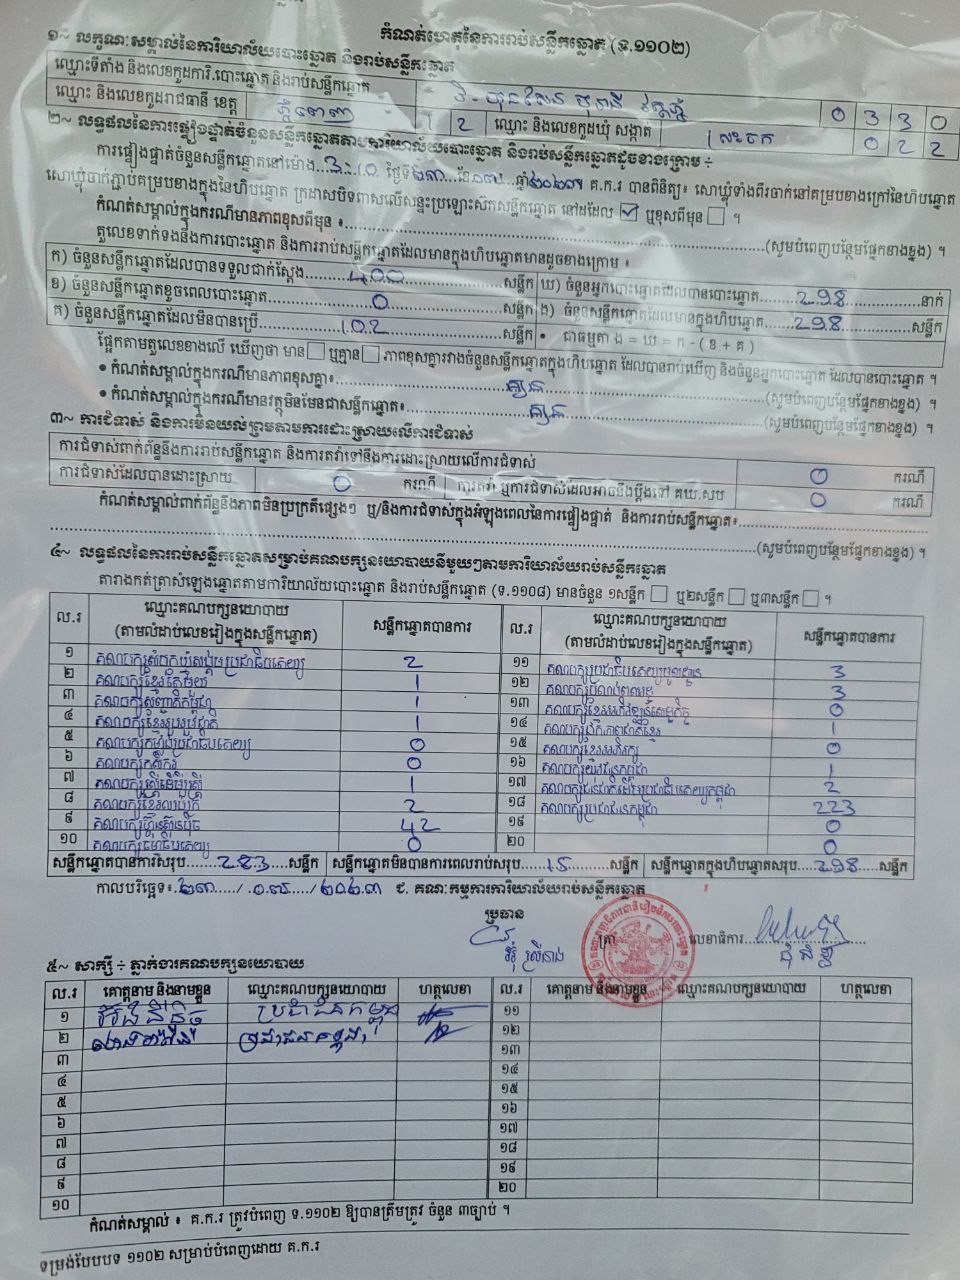 កំណត់ហេតុនៃការរាប់សន្លឹកឆ្នោត (ទ.១១០២)
១~ លក្ខណៈសម្គាល់នៃការិយាល័យបោះឆ្នោត និងរាប់សន្លឹកឆ្នោត
ឈ្មោះទីតាំង និងលេខកូដការិ.បោះឆ្នោត និងរាប់សន្លឹកឆ្នោត 0 3 3 0
ឈ្មោះ និងលេខកូដរាជធានី ខេត្ត ភ្នំពេញ 1 2 ឈ្មោះ និងលេខកូដឃុំ សង្កាត់ ស្រះចក 0 2 2
២~ លទ្ធផលនៃការផ្ទៀងផ្ទាត់ចំនួនសន្លឹកឆ្នោតតាមការិយាល័យបោះឆ្នោត និងរាប់សន្លឹកឆ្នោតដូចខាងក្រោម ÷
ការផ្ទៀងផ្ទាត់ចំនួនសន្លឹកឆ្នោតនៅម៉ោង 3:10 ថ្ងៃទី ២៣ ខែ ០៧ ឆ្នាំ ២០២៣។ គ.ក.រ បានពិនិត្យ៖ សោឃ្លុំទាំងពីរចាក់នៅគម្របខាងក្រៅនៃហិបឆ្នោត
សោឃ្លុំចាក់ភ្ជាប់គម្របខាងក្នុងនៃហិបឆ្នោត ក្រដាសបិទពាសលើសន្ទះប្រឡោះស៊កសន្លឹកឆ្នោត នៅដដែល ☑ ឬខុសពីមុន ☐ ។
កំណត់សម្គាល់ក្នុងករណីមានភាពខុសពីមុន ៖ (សូមបំពេញបន្ថែមផ្នែកខាងខ្នង) ។
តួលេខទាក់ទងនឹងការបោះឆ្នោត និងការរាប់សន្លឹកឆ្នោតដែលមានក្នុងហិបឆ្នោតមានដូចខាងក្រោម ៖
ក) ចំនួនសន្លឹកឆ្នោតដែលបានទទួលជាក់ស្តែង 400 សន្លឹក ឃ) ចំនួនអ្នកបោះឆ្នោតដែលបានបោះឆ្នោត 298 នាក់
ខ) ចំនួនសន្លឹកឆ្នោតខូចពេលបោះឆ្នោត 0 សន្លឹក ង) ចំនួនសន្លឹកឆ្នោតដែលមានក្នុងហិបឆ្នោត 298 សន្លឹក
គ) ចំនួនសន្លឹកឆ្នោតដែលមិនបានប្រើ 102 សន្លឹក • ជាធម្មតា ង = ឃ = ក - ( ខ + គ )
ផ្អែកតាមតួលេខខាងលើ ឃើញថា មាន ☐ ឬគ្មាន ☐ ភាពខុសគ្នារវាងចំនួនសន្លឹកឆ្នោតក្នុងហិបឆ្នោត ដែលបានរាប់ឃើញ និងចំនួនអ្នកបោះឆ្នោត ដែលបានបោះឆ្នោត ។
• កំណត់សម្គាល់ក្នុងករណីមានភាពខុសគ្នា៖ គ្មាន (សូមបំពេញបន្ថែមផ្នែកខាងខ្នង) ។
• កំណត់សម្គាល់ក្នុងករណីមានវត្ថុមិនមែនជាសន្លឹកឆ្នោត៖ គ្មាន (សូមបំពេញបន្ថែមផ្នែកខាងខ្នង) ។
៣~ ការជំទាស់ និងការមិនយល់ព្រមតាមការដោះស្រាយលើការជំទាស់
ការជំទាស់ពាក់ព័ន្ធនឹងការរាប់សន្លឹកឆ្នោត និងការតវ៉ាទៅនឹងការដោះស្រាយលើការជំទាស់ 0 ករណី
ការជំទាស់ដែលបានដោះស្រាយ 0 ករណី ការតវ៉ា ឬការជំទាស់ដែលអាចប្តឹងទៅ គឃ.សប 0 ករណី
កំណត់សម្គាល់ពាក់ព័ន្ធនឹងភាពមិនប្រក្រតីផ្សេងៗ ឬ/និងការជំទាស់ក្នុងអំឡុងពេលនៃការផ្ទៀងផ្ទាត់ និងការរាប់សន្លឹកឆ្នោត៖
(សូមបំពេញបន្ថែមផ្នែកខាងខ្នង) ។
៤~ លទ្ធផលនៃការរាប់សន្លឹកឆ្នោតសម្រាប់គណបក្សនយោបាយនីមួយៗតាមការិយាល័យរាប់សន្លឹកឆ្នោត
តារាងកត់ត្រាសំឡេងឆ្នោតតាមការិយាល័យបោះឆ្នោត និងរាប់សន្លឹកឆ្នោត (ទ.១១០៨) មានចំនួន ១សន្លឹក ☐ ឬ២សន្លឹក ☐ ឬ៣សន្លឹក ☐ ។
ល.រ ឈ្មោះគណបក្សនយោបាយ (តាមលំដាប់លេខរៀងក្នុងសន្លឹកឆ្នោត) សន្លឹកឆ្នោតបានការ ល.រ ឈ្មោះគណបក្សនយោបាយ (តាមលំដាប់លេខរៀងក្នុងសន្លឹកឆ្នោត) សន្លឹកឆ្នោតបានការ
១ គណបក្សសំបុកឃ្មុំសង្គមប្រជាធិបតេយ្យ 2 ១១ គណបក្សប្រជាធិបតេយ្យមូលដ្ឋាន 3
២ គណបក្សខ្មែរតែមួយ 1 ១២ គណបក្សពលរដ្ឋ 3
៣ គណបក្សសញ្ជាតិកម្ពុជា 1 ១៣ គណបក្សខ្មែរអភិវឌ្ឍន៍សេដ្ឋកិច្ច 0
៤ គណបក្សខ្មែររួបរួមជាតិ 1 ១៤ គណបក្សឯកភាពជាតិខ្មែរ 1
៥ គណបក្សកម្លាំងប្រជាធិបតេយ្យ 0 ១៥ គណបក្សខ្មែរអភិរក្ស 0
៦ គណបក្សកសិករ 0 ១៦ គណបក្សយុវជនកម្ពុជា 1
៧ គណបក្សស្ត្រីដើម្បីស្ត្រី 1 ១៧ គណបក្សជនជាតិដើមប្រជាធិបតេយ្យកម្ពុជា 2
៨ គណបក្សខ្មែរឈប់ក្រ 2 ១៨ គណបក្សប្រជាជនកម្ពុជា 223
៩ គណបក្សហ៊្វុនស៊ិនប៉ិច 42 ១៩ 0
១០ គណបក្សធម្មាធិបតេយ្យ 0 ២០ 0
សន្លឹកឆ្នោតបានការសរុប 283 សន្លឹក សន្លឹកឆ្នោតមិនបានការពេលរាប់សរុប 15 សន្លឹក សន្លឹកឆ្នោតក្នុងហិបឆ្នោតសរុប 298 សន្លឹក
កាលបរិច្ឆេទ៖ ២៣ / ០៧ / ២០២៣ ជ. គណៈកម្មការការិយាល័យរាប់សន្លឹកឆ្នោត
ប្រធាន
ត្រា លេខាធិការ
៥~ សាក្សី ÷ ភ្នាក់ងារគណបក្សនយោបាយ
ល.រ គោត្តនាម និងនាមខ្លួន ឈ្មោះគណបក្សនយោបាយ ហត្ថលេខា ល.រ គោត្តនាម និងនាមខ្លួន ឈ្មោះគណបក្សនយោបាយ ហត្ថលេខា
១ ប្រជាជនកម្ពុជា ១១
២ ប្រជាជនកម្ពុជា ១២
៣ ១៣
៤ ១៤
៥ ១៥
៦ ១៦
៧ ១៧
៨ ១៨
៩ ១៩
១០ ២០
កំណត់សម្គាល់ ៖ គ.ក.រ ត្រូវបំពេញ ទ.១១០២ ឱ្យបានត្រឹមត្រូវ ចំនួន ៣ច្បាប់ ។
ទម្រង់បែបបទ ១១០២ សម្រាប់បំពេញដោយ គ.ក.រ